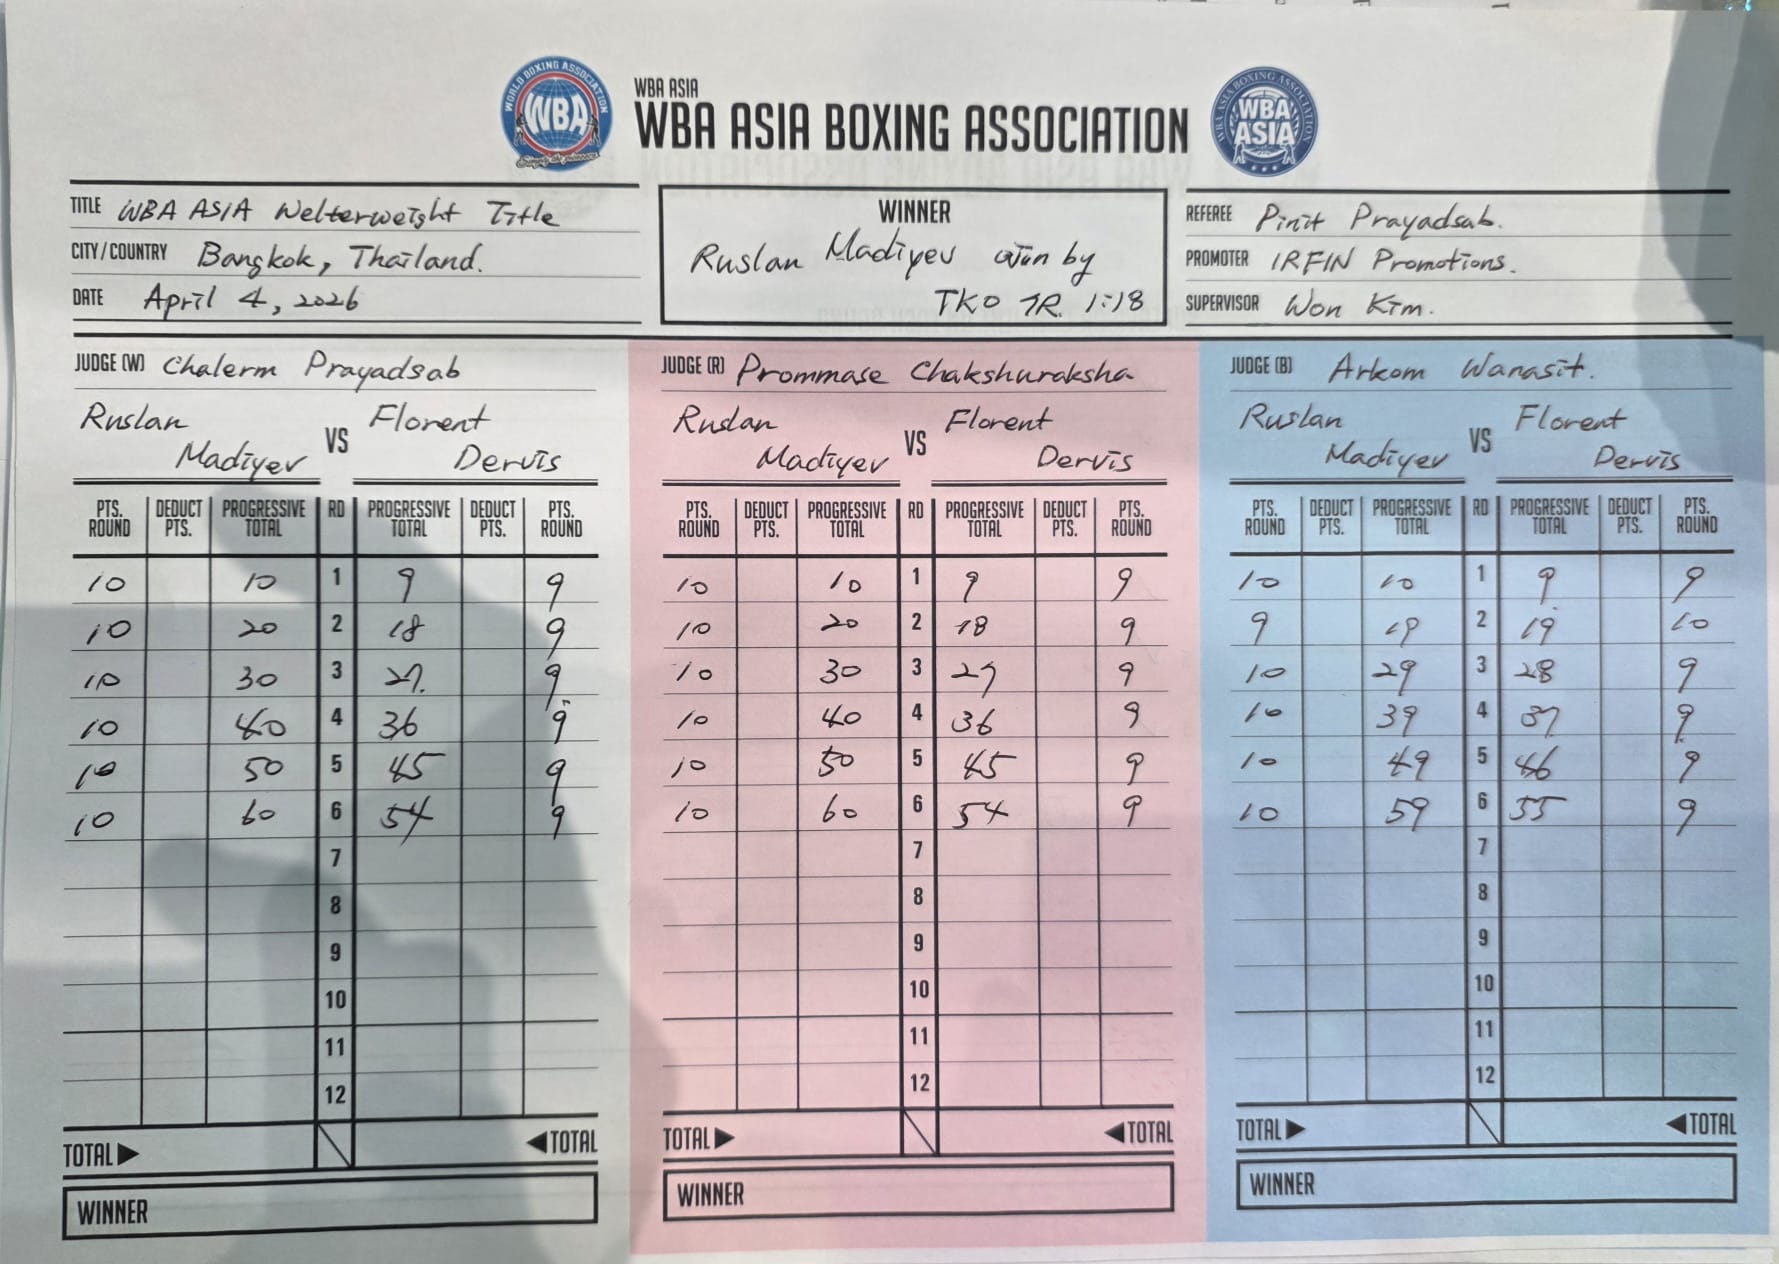 WORLD BOXING ASSOCIATION
WBA
Simply the pioneers
WBA ASIA
WBA ASIA BOXING ASSOCIATION
WBA ASIA BOXING ASSOCIATION
WBA
ASIA
TITLE WBA ASIA Welterweight Title
CITY/COUNTRY Bangkok, Thailand.
DATE April 4, 2026
WINNER
Ruslan Madiyev win by
TKO 7R. 1:18
REFEREE Pinit Prayadsab.
PROMOTER IRFIN Promotions.
SUPERVISOR Won Kim.
JUDGE (W) Chalerm Prayadsab
Ruslan Madiyev VS Florent Dervis
PTS. ROUND DEDUCT PTS. PROGRESSIVE TOTAL RD PROGRESSIVE TOTAL DEDUCT PTS. PTS. ROUND
10 10 1 9 9
10 20 2 18 9
10 30 3 27. 9
10 40 4 36 9
10 50 5 45 9
10 60 6 54 9
7
8
9
10
11
12
TOTAL▶ ◀TOTAL
WINNER
JUDGE (R) Prommase Chakshuraksha
Ruslan Madiyev VS Florent Dervis
PTS. ROUND DEDUCT PTS. PROGRESSIVE TOTAL RD PROGRESSIVE TOTAL DEDUCT PTS. PTS. ROUND
10 10 1 9 9
10 20 2 18 9
10 30 3 27 9
10 40 4 36 9
10 50 5 45 9
10 60 6 54 9
7
8
9
10
11
12
TOTAL▶ ◀TOTAL
WINNER
JUDGE (B) Arkom Wanasit.
Ruslan Madiyev VS Florent Dervis
PTS. ROUND DEDUCT PTS. PROGRESSIVE TOTAL RD PROGRESSIVE TOTAL DEDUCT PTS. PTS. ROUND
10 10 1 9 9
9 19 2 19 10
10 29 3 28 9
10 39 4 37 9
10 49 5 46 9
10 59 6 55 9
7
8
9
10
11
12
TOTAL▶ ◀TOTAL
WINNER